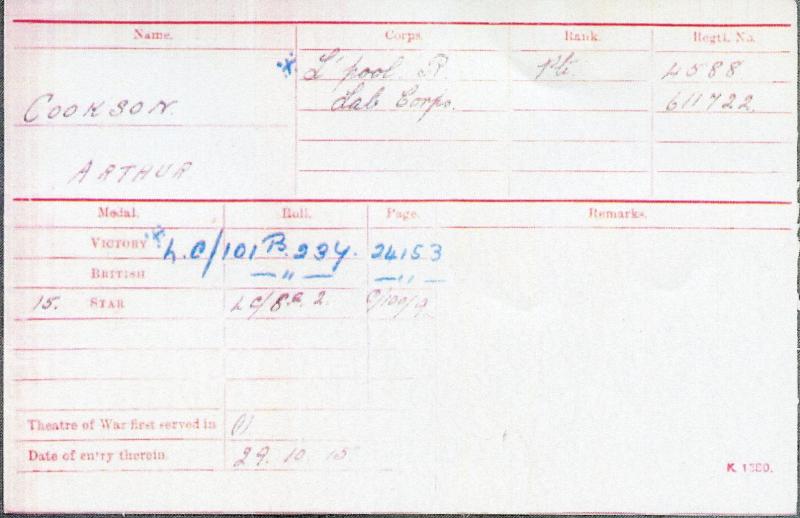 Name. Corps. Rank. Regtl. No.
* L'pool. R. Pte. 4588
COOKSON. Lab Corps. 611722.
ARTHUR
Medal. Roll. Page. Remarks.
VICTORY * L.C/101 B. 234. 24153
BRITISH — " — — " —
15. STAR LC/8 2.
Theatre of War first served in (1)
Date of entry therein. 29. 10. 15
K. 1380.